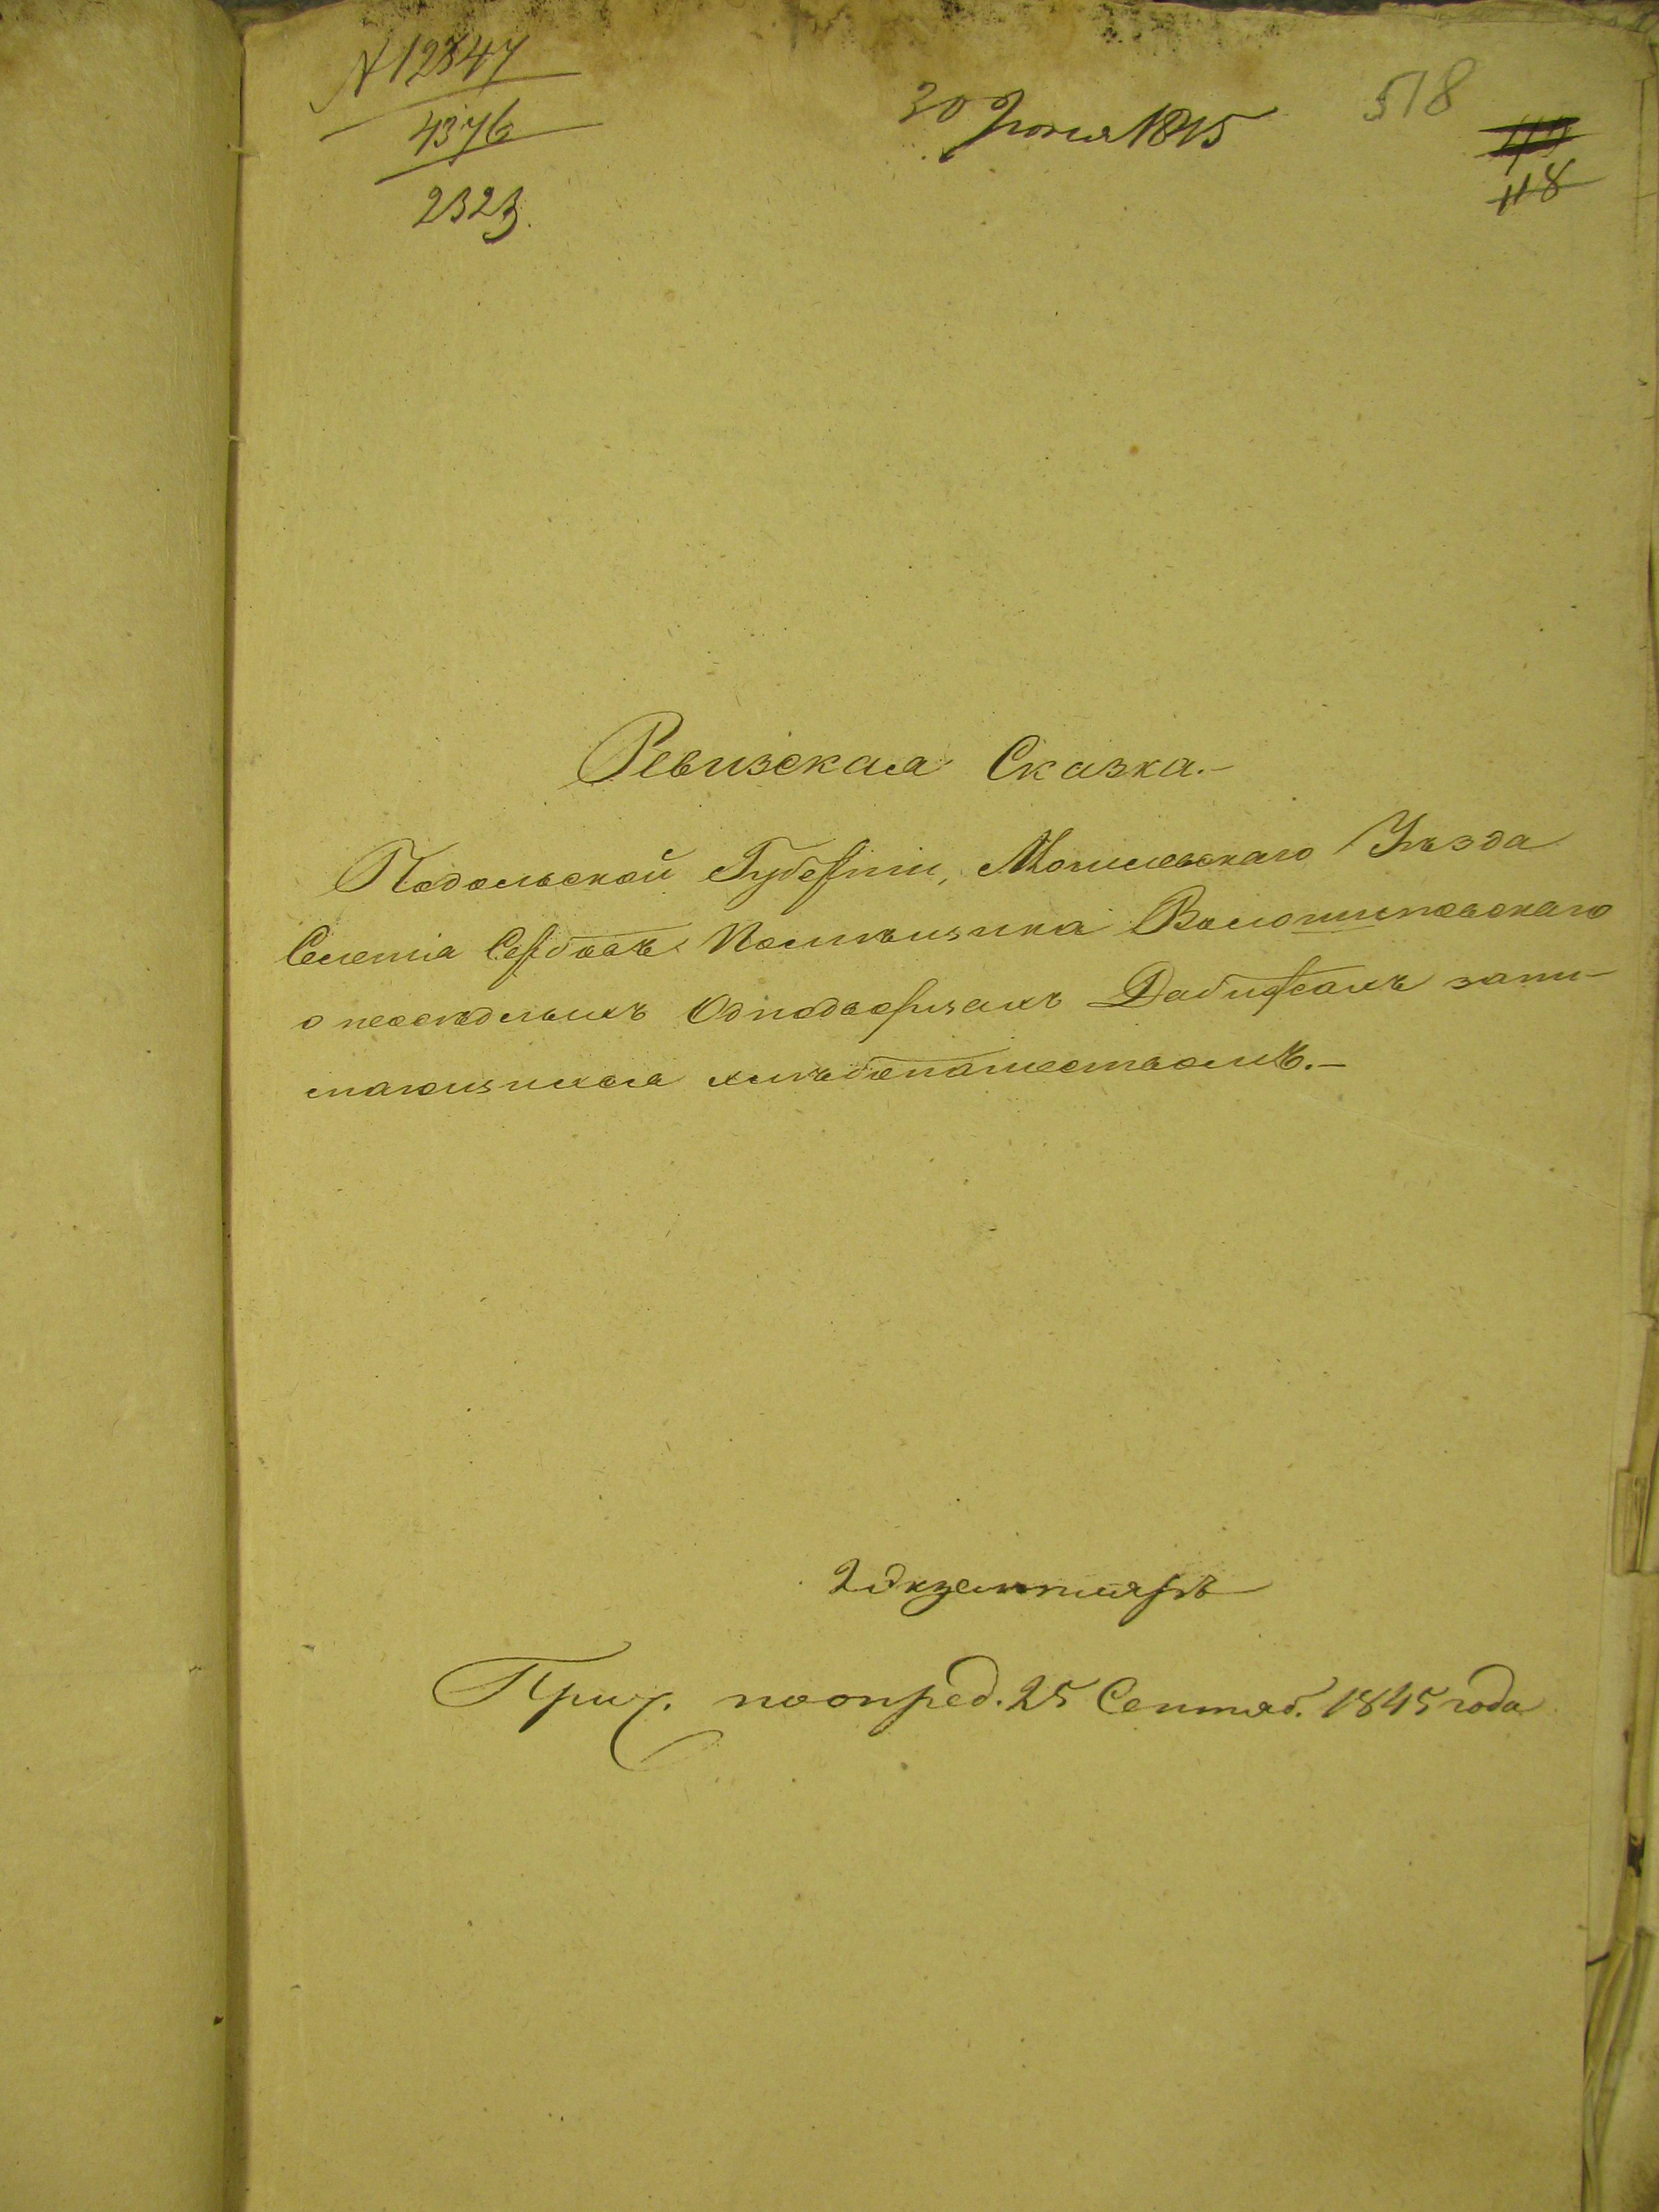 № 12847
4376
2323.
30 Июня 1845
518
118
Ревизская Сказка.-
Подольской Губерніи, Могилевскаго Уѣзда
Селенія Сербовъ Помѣщика
о неосѣдлыхъ Однодворцахъ зани-
мающихся хлѣбопашествомъ.-
2 Экземпляръ
Прич. по опред. 25 Сентяб. 1845 года